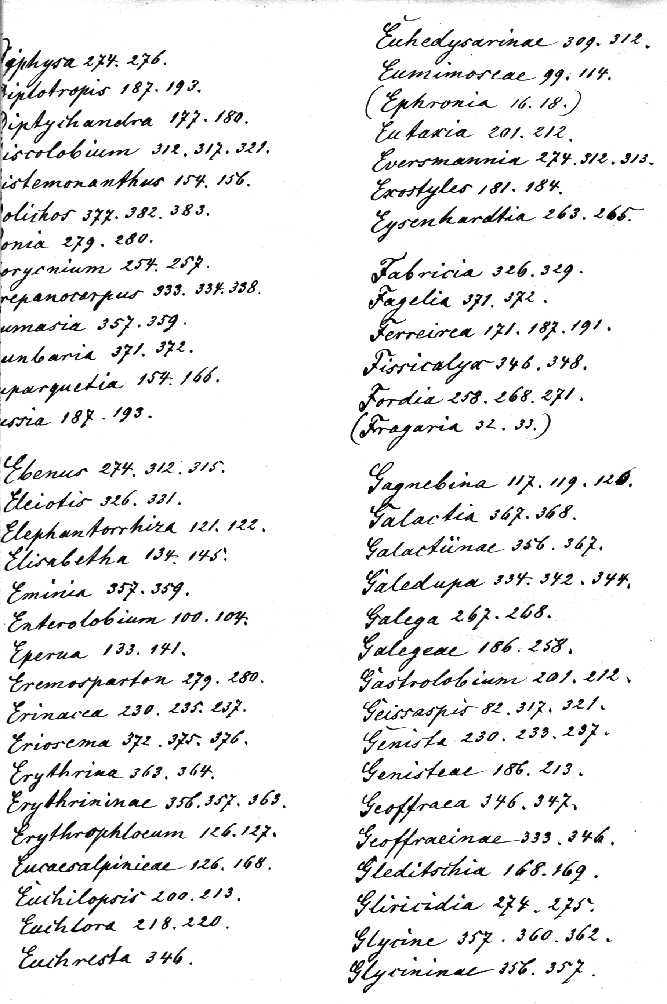 iphysa 274. 276.
iplotropis 187. 193.
iptychandra 177. 180.
iscolobium 312. 317. 321.
istemonanthus 154. 156.
olichos 377. 382. 383.
onia 279. 280.
orycnium 254. 257.
repanocarpus 333. 334. 338.
umasia 357. 359.
unbaria 371. 372.
uparquetia 154. 166.
ussia 187. 193.
Ebenus 274. 312. 315.
Eleiotis 326. 331.
Elephantorrhiza 121. 122.
Elisabetha 134. 145.
Eminia 357. 359.
Enterolobium 100. 104.
Eperua 133. 141.
Eremosparton 279. 280.
Erinacea 230. 235. 237.
Eriosema 372. 375. 376.
Erythrina 363. 364.
Erythrininae 356. 357. 363.
Erythrophloeum 126. 127.
Eucaesalpinieae 126. 168.
Euchilopsis 200. 213.
Euchlora 218. 220.
Euchresta 346.
Euhedysarinae 309. 312.
Eumimoseae 99. 114.
(Ephronia 16. 18.)
Eutaxia 201. 212.
Eversmannia 274. 312. 313.
Exostyles 181. 184.
Eysenhardtia 263. 265.
Fabricia 326. 329.
Fagelia 371. 372.
Ferreirea 171. 187. 191.
Fissicalyx 346. 348.
Fordia 258. 268. 271.
(Fragaria 32. 33.)
Gagnebina 117. 119. 120.
Galactia 367. 368.
Galactiinae 356. 367.
Galedupa 334. 342. 344.
Galega 267. 268.
Galegeae 186. 258.
Gastrolobium 201. 212.
Geissaspis 82. 317. 321.
Genista 230. 233. 237.
Genisteae 186. 213.
Geoffraea 346. 347.
Geoffraeinae 333. 346.
Gleditschia 168. 169.
Gliricidia 274. 275.
Glycine 357. 360. 362.
Glycininae 356. 357.